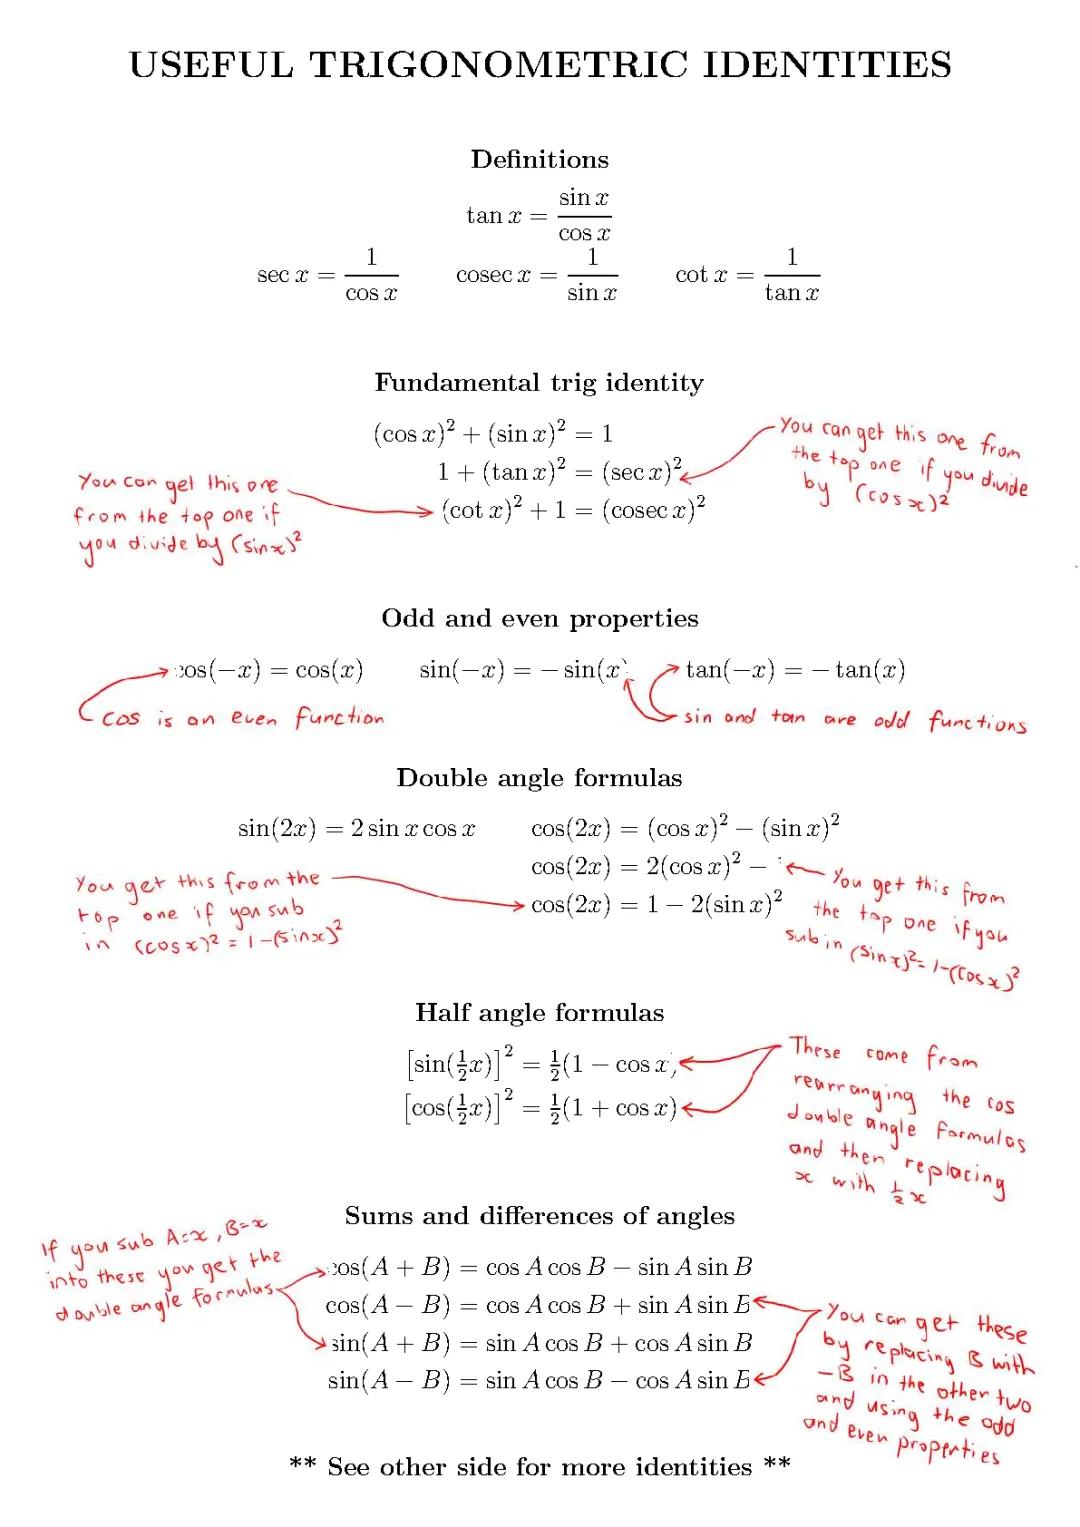 USEFUL TRIGONOMETRIC IDENTITIES
Definitions
tan x = sin x / cos x
sec x = 1 / cos x    cosec x = 1 / sin x    cot x = 1 / tan x
Fundamental trig identity
(cos x)² + (sin x)² = 1
1 + (tan x)² = (sec x)²
(cot x)² + 1 = (cosec x)²
You can get this one
from the top one if
you divide by (sin x)²
You can get this one from
the top one if you divide
by (cos x)²
Odd and even properties
cos(−x) = cos(x)    sin(−x) = − sin(x)    tan(−x) = − tan(x)
cos is an even function
sin and tan are odd functions
Double angle formulas
sin(2x) = 2 sin x cos x    cos(2x) = (cos x)² − (sin x)²
cos(2x) = 2(cos x)² −
cos(2x) = 1 − 2(sin x)²
You get this from the
top one if you sub
in (cos x)² = 1 − (sin x)²
You get this from
the top one if you
sub in (sin x)² = 1 − (cos x)²
Half angle formulas
[sin(½x)]² = ½(1 − cos x)
[cos(½x)]² = ½(1 + cos x)
These come from
rearranging the cos
double angle formulas
and then replacing
x with ½ x
Sums and differences of angles
If you sub A=x, B=x
into these you get the
double angle formulas
cos(A + B) = cos A cos B − sin A sin B
cos(A − B) = cos A cos B + sin A sin B
sin(A + B) = sin A cos B + cos A sin B
sin(A − B) = sin A cos B − cos A sin B
You can get these
by replacing B with
−B in the other two
and using the odd
and even properties
** See other side for more identities **